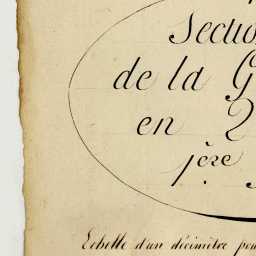 Sectio
de la G
en 2
1ère
Echelle d'un décimètre pou